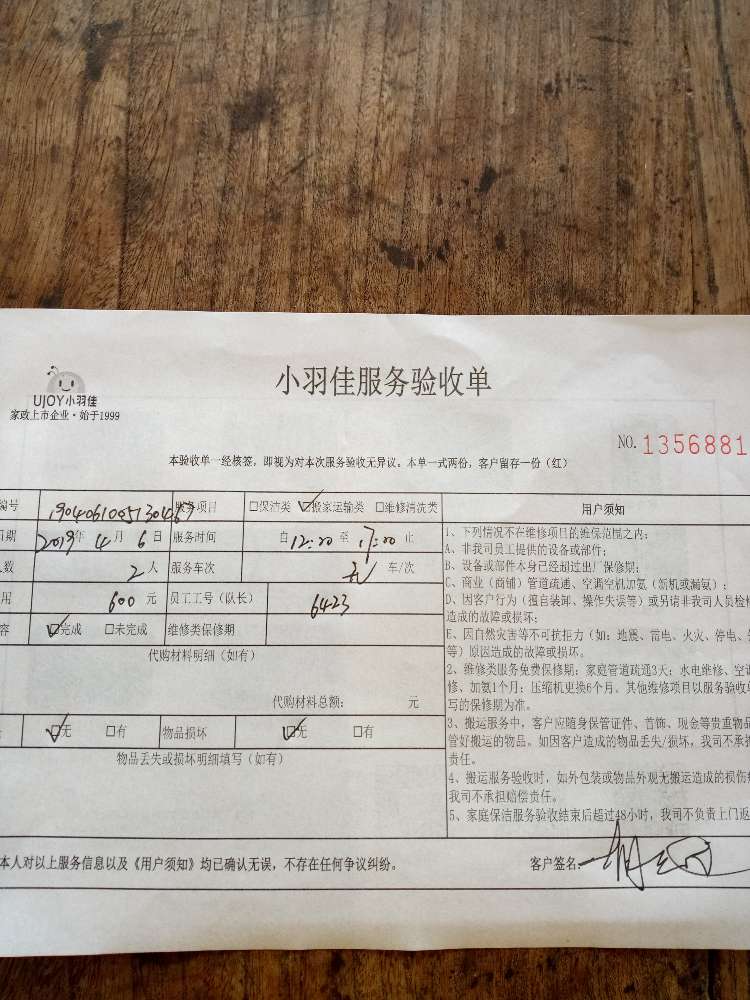 小羽佳服务验收单
UJOY小羽佳
家政上市企业·始于1999
NO. 1356881
本验收单一经核签，即视为对本次服务验收无异议。本单一式两份，客户留存一份（红）
编号 服务项目 □保洁类 ☑搬家运输类 □维修清洗类
日期 2019年 4月 6日 服务时间 自 12:00 至 17:00 止
人数 2 人 服务车次 车/次
用 600 元 员工工号（队长） 6423
容 ☑完成 □未完成 维修类保修期
代购材料明细（如有）
代购材料总额： 元
☑无 □有 物品损坏 ☑无 □有
物品丢失或损坏明细填写（如有）
用户须知
1、下列情况不在维修项目的维保范围之内：
A、非我司员工提供的设备或部件；
B、设备或部件本身已经超过出厂保修期；
C、商业（商铺）管道疏通、空调空机加氨（新机或漏氨）；
D、因客户行为（擅自装卸、操作失误等）或另请非我司人员检
造成的故障或损坏；
E、因自然灾害等不可抗拒力（如：地震、雷电、火灾、停电、
等）原因造成的故障或损坏。
2、维修类服务免费保修期：家庭管道疏通3天；水电维修、空
修、加氨1个月；压缩机更换6个月。其他维修项目以服务验收
写的保修期为准。
3、搬运服务中，客户应随身保管证件、首饰、现金等贵重物品
管好搬运的物品。如因客户造成的物品丢失/损坏，我司不承
责任。
4、搬运服务验收时，如外包装或物品外观无搬运造成的损伤
我司不承担赔偿责任。
5、家庭保洁服务验收结束后超过48小时，我司不负责上门返
本人对以上服务信息以及《用户须知》均已确认无误，不存在任何争议纠纷。 客户签名：